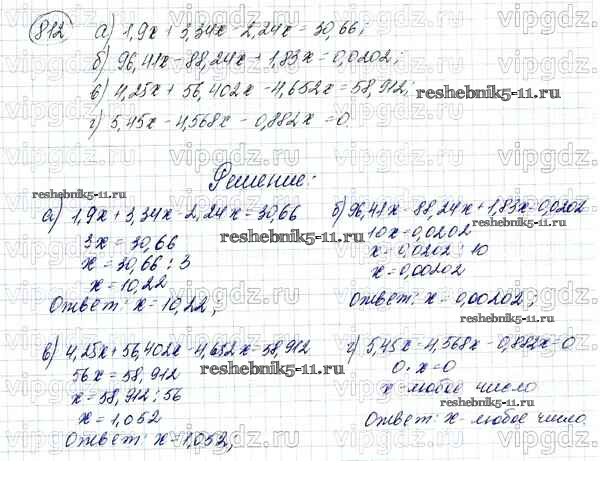 812. а) 1,9x + 3,34x - 2,24x = 30,66;
б) 96,41x - 88,24x + 1,83x = 0,0202;
в) 4,25x + 56,402x - 4,652x = 58,912;
г) 5,45x - 4,568x - 0,882x = 0
reshebnik5-11.ru
Решение:
reshebnik5-11.ru
а) 1,9x + 3,34x - 2,24x = 30,66
3x = 30,66
x = 30,66 : 3
x = 10,22
Ответ: x = 10,22;
reshebnik5-11.ru
б) 96,41x - 88,24x + 1,83x = 0,0202
10x = 0,0202
x = 0,0202 : 10
x = 0,00202
Ответ: x = 0,00202;
reshebnik5-11.ru
в) 4,25x + 56,402x - 4,652x = 58,912
56x = 58,912
x = 58,912 : 56
x = 1,052
Ответ: x = 1,052;
reshebnik5-11.ru
г) 5,45x - 4,568x - 0,882x = 0
0 · x = 0
x - любое число
Ответ: x - любое число.
reshebnik5-11.ru
vipgdz.ru